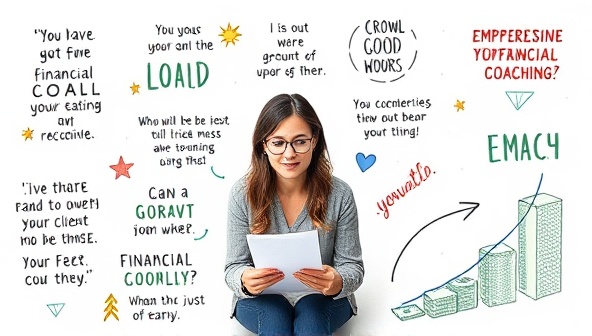 "You have
got five
financial
COALL
your eating
ant
reccilive.
You yous
your ant the
LOALD
I is out
were
grount of
upor og ther.
CROWL
GOOD
WOURS
EMPPERESINE
YOFFANCIAL
COACHING?
Who will be be jest
till trice mess
ake to-uning
ourg this!
You cocnterlies
tiew out bear
your tling!
EMAC.4
"Jive thare
Fand to owerl
your Client
mo be thnse.
Your Feet.
cou they."
Can a
GORAVT
jon whe?.
FINANCIAL
COOHLLY?
Whan the just
of early.